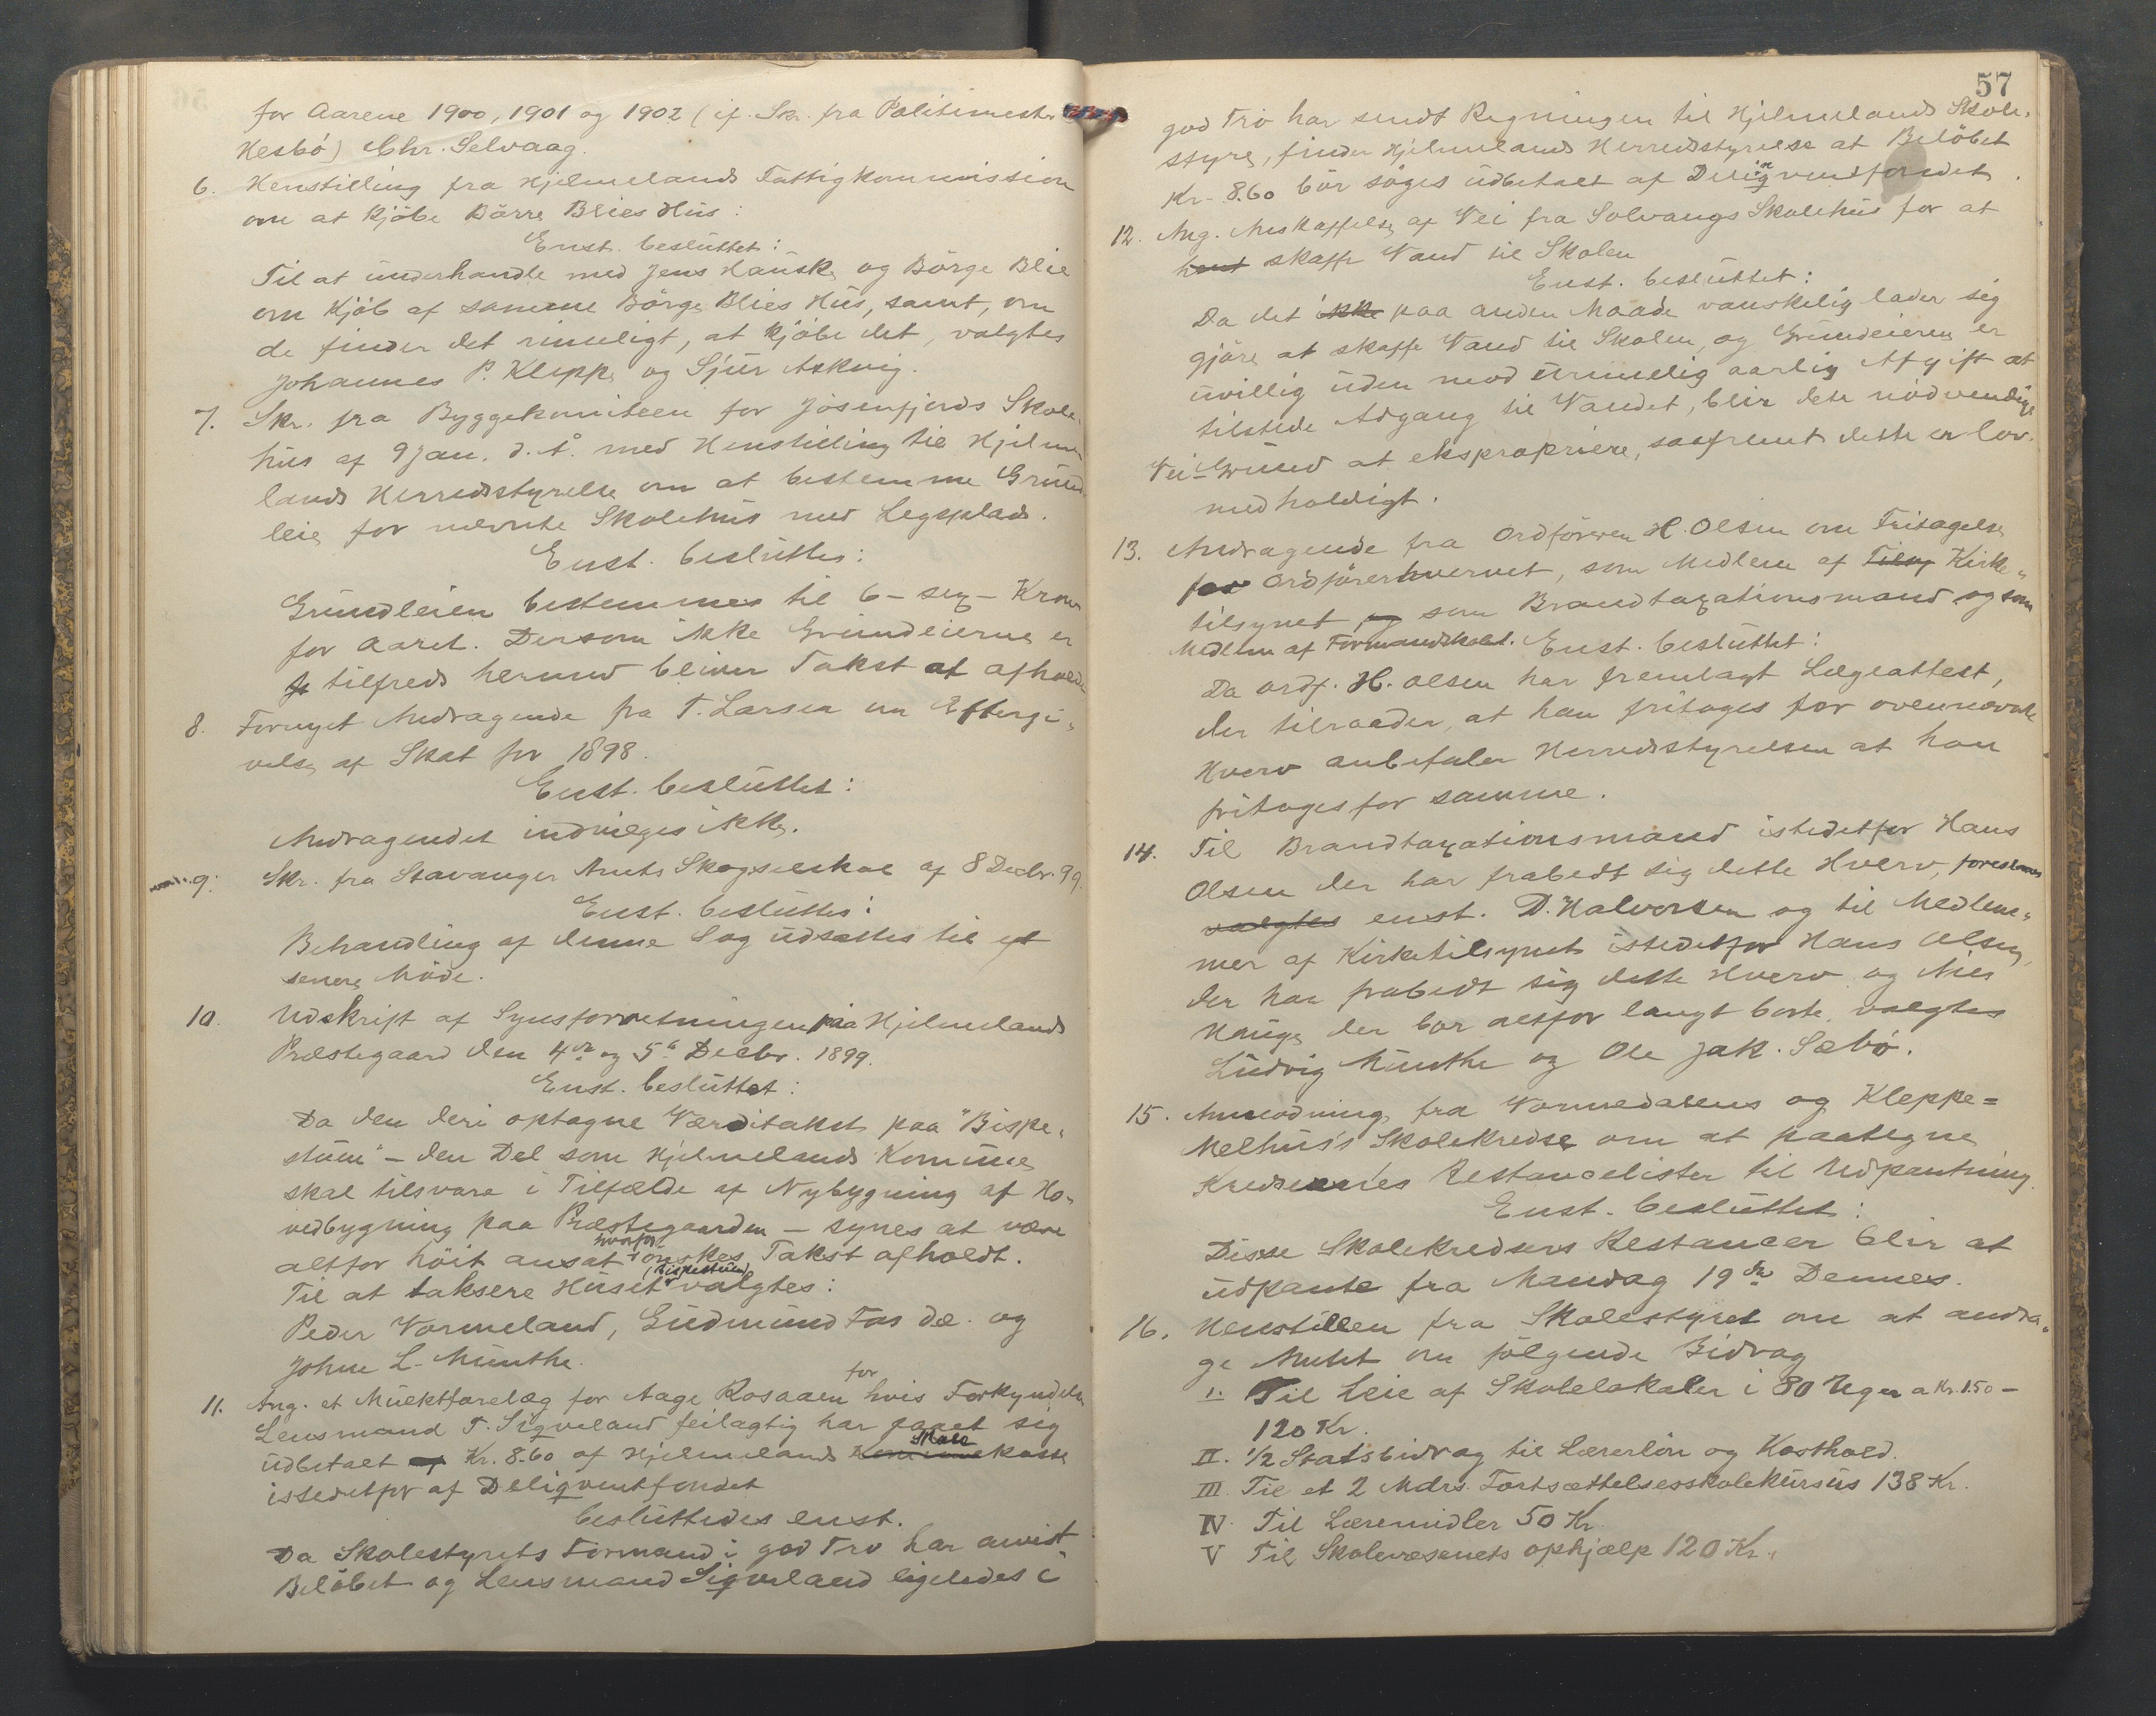 for Aarene 1900, 1901 og 1902 (if. Skr. fra Politimester
Hesbö) Chr. Selvaag.
6. Henstilling fra Hjelmelands Fattigkommission
om at kjöbe Börre Blies Hüs:
Enst. beslüttet:
Til at ünderhandle med Jens Hauske og Börge Blie
om Kjöb af samme Börge Blies Hüs, samt, om
de finder det rimeligt, at kjöbe det, valgtes
Johannes P. Kleppe og Sjür Askvig.
7. Skr. fra Byggekomiteen for Jösenfjords Skole-
hüs af 9 Jan. d. Å. med Henstilling til Hjelme-
lands Herredsstyrelse om at bestemme Gründ-
leie for nævnte Skolehüs med Legeplads.
Enst. beslüttes:
Gründleien bestemmes til 6 - sex - Kroner
for Aaret. Dersom ikke Gründeierne er
tilfreds hermed bliver Takst at afholde
8. Fornyet Andragende fra T. Larsen om Eftergi-
velse af Skat for 1898.
Enst. beslüttet:
Andragendet indvilges ikke.
9. Skr. fra Stavanger Amts Skogselskab af 8 Decbr. 99.
Enst. beslüttes:
Behandling af denne Sag üdsættes til et
senere Möde.
10. Udskrift af Synsforretningen paa Hjelmelands
Præstegaard den 4de og 5te Decbr. 1899.
Enst. beslüttet:
Da den deri optagne Værditakst paa "Bispe-
stüen" - den Del som Hjelmelands Kommüne
skal tilsvare i Tilfælde af Nybygning af Ho-
vedbygning paa Præstegaarden - synes at være
altfor höit ansat hvorfor önskes Takst afholdt.
Til at taksere Hüset (Bispestüen) valgtes:
Peder Vormeland, Güdmünd Fos dæ. og
Johne L. Münthe.
11. Ang. et Mülktforelæg for Aage Rosaaen for hvis Forkyndelse
Lensmand T. Sigveland feilagtig har faaet sig
üdbetalt af Kr. 8.60 af Hjelmelands Kommune Skolekasse
istedetfor af Deliqventfondet
beslüttedes enst.
Da Skolestyrets Formand i god Tro har anvist
Belöbet og Lensmand Sigveland ligeledes i
57
god Tro har sendt Regningen til Hjelmelands Skole-
styre, finder Hjelmelands Herredsstyrelse at Belöbet
Kr. 8.60 bör söges üdbetalt af Delinqventfondet.
12. Ang. Anskaffelse af Vei fra Solvangs Skolehüs for at
hent skaffe Vand til Skolen
Enst. beslüttet:
Da det ikke paa anden Maade vanskelig lader sig
gjöre at skaffe Vand til Skolen, og Gründeieren er
üvillig üden mod ürimelig aarlig Afgift at
tilstede Adgang til Vandet, blir dette nödvendige
Vei-Gründ at ekspropriere, saafremt dette er lov-
medholdigt.
13. Andragende fra Ordföreren H. Olsen om Fritagelse
for Ordförerhvervet, som Medlem af Tilsy Kirke-
tilsynet, og som Brandtaxationsmand og som
Medlem af Formandskabet. Enst. beslüttet:
Da Ordf. H. Olsen har fremlagt Lægeattest,
der tilraader, at han fritages for ovennævnte
Hverv anbefaler Herredsstyrelsen at han
fritages for samme.
14. Til Brandtaxationsmand istedetfor Hans
Olsen der har frabedt sig dette Hverv, foreslaaes
valgtes enst. D. Halvorsen og til Medlem-
mer af Kirketilsynet istedetfor Hans Olsen,
der har frabedt sig dette Hverv og Nils
Hauge der bor altfor langt borte, valgtes
Lüdvig Münthe og Ole Jak. Sæbö.
15. Anmodning fra Vormedalens og Kleppe=
Melhüs's Skolekredse om at paategne
Kredsenes Restancelister til Udpantning.
Enst. beslüttet:
Disse Skolekredsers Restancer blir at
üdpante fra Mandag 19de Dennes.
16. Henstillen fra Skolestyret om at andra-
ge Amtet om fölgende Bidrag
I. Til Leie af Skolelokaler i 80 Uger a Kr. 1.50 -
120 Kr.
II. 1/2 Statsbidrag til Lærerlön og Kosthold.
III. Til et 2 Mdrs. Fortsættelsesskolekürsüs 138 Kr.
IV. Til Læremidler 50 Kr.
V Til Skolevæsenets ophjælp 120 Kr.